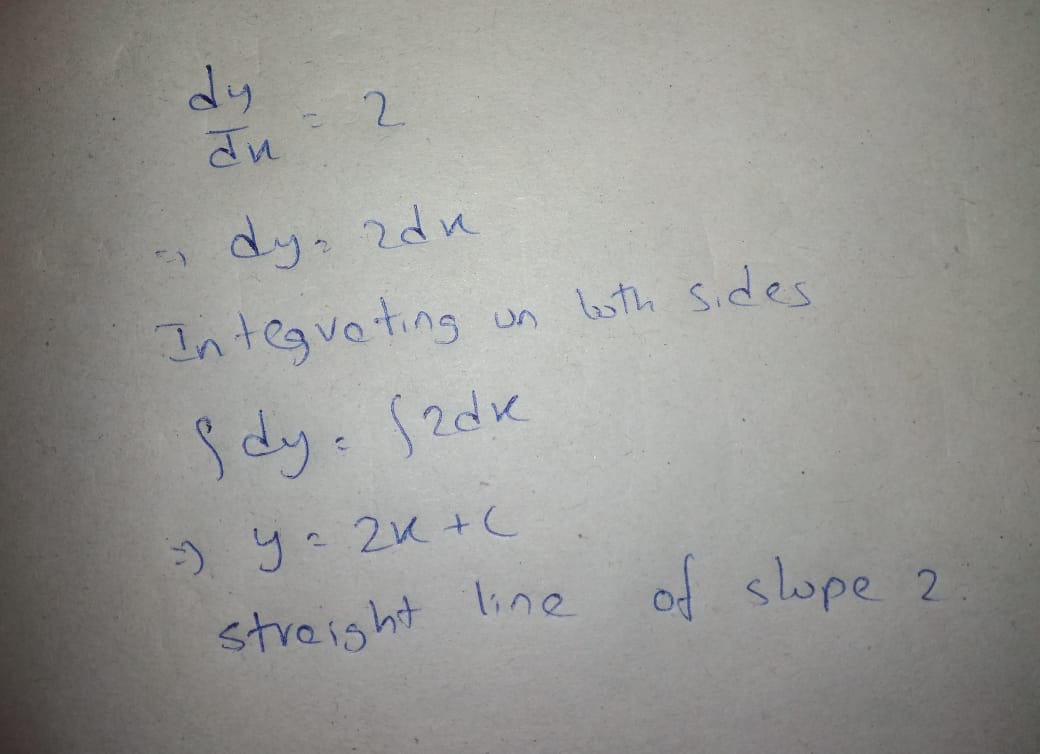 dy/dx = 2
=> dy = 2dx
Integrating on both sides
∫dy = ∫2dx
=> y = 2x + c
straight line of slope 2.